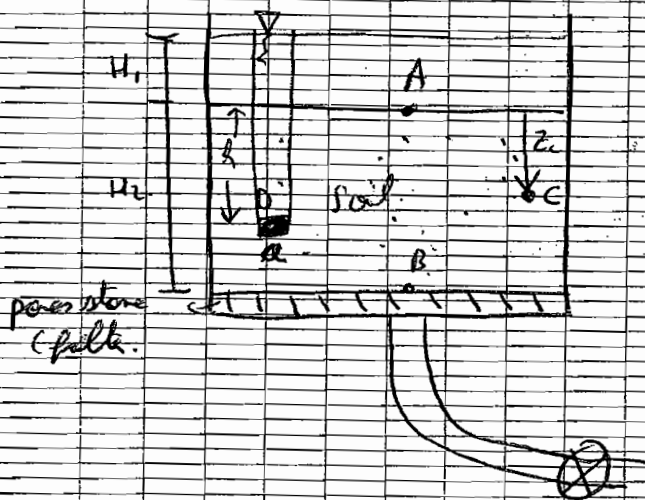 H₁
A
h
Zc
H₂
soil
C
a
B
porous stone
(filter.